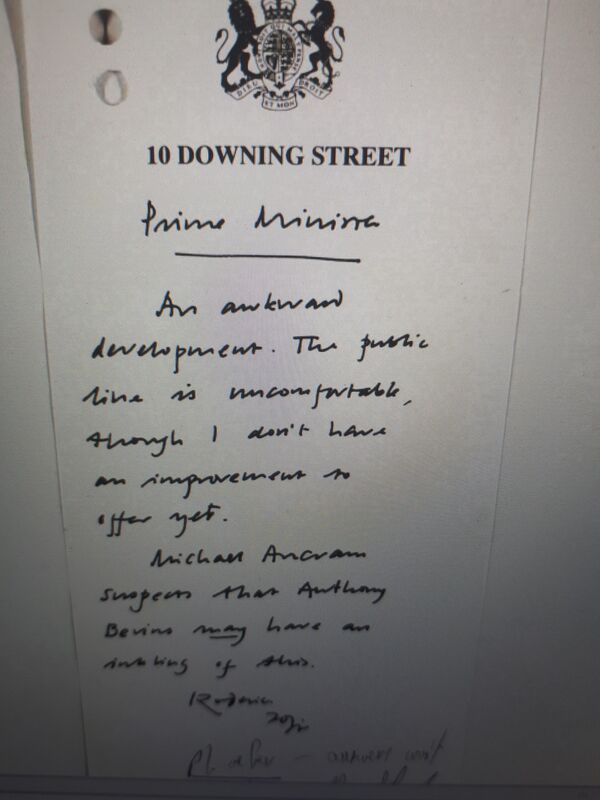 DIEU
DROIT
ET MON
10 DOWNING STREET
Prime Minister
An awkward
development. The public
line is uncomfortable,
though I don't have
an improvement to
offer yet.
Michael Ancram
suspects that Anthony
Bevins may have an
inkling of this.
Roderic